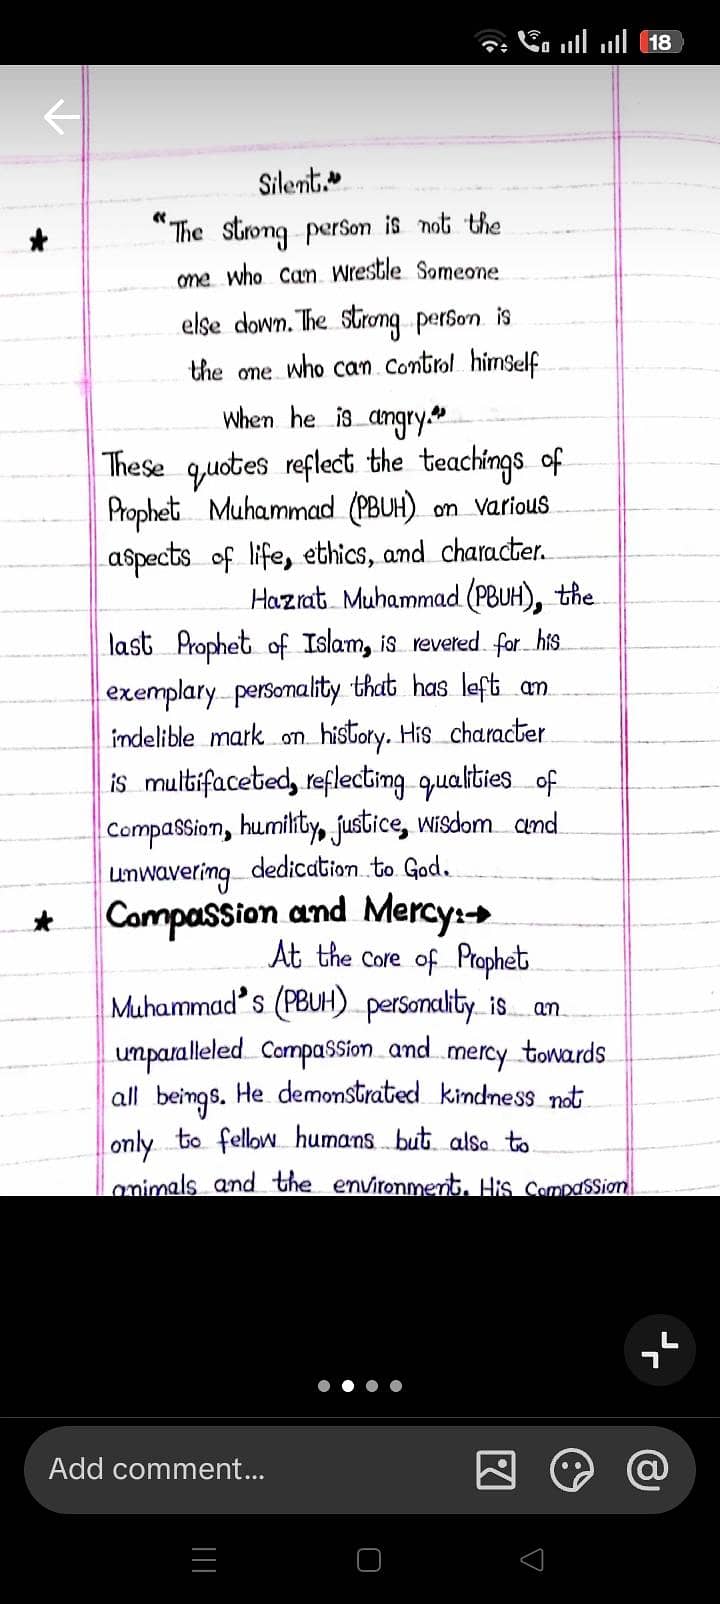 18
Silent.”
★ “The strong person is not the
one who can wrestle someone
else down. The strong person is
the one who can control himself
when he is angry.”
These quotes reflect the teachings of
Prophet Muhammad (PBUH) on various
aspects of life, ethics, and character.
Hazrat Muhammad (PBUH), the
last Prophet of Islam, is revered for his
exemplary personality that has left an
indelible mark on history. His character
is multifaceted, reflecting qualities of
compassion, humility, justice, wisdom and
unwavering dedication to God.
★ Compassion and Mercy:→
At the core of Prophet
Muhammad's (PBUH) personality is an
unparalleled compassion and mercy towards
all beings. He demonstrated kindness not
only to fellow humans but also to
animals and the environment. His compassion
Add comment...